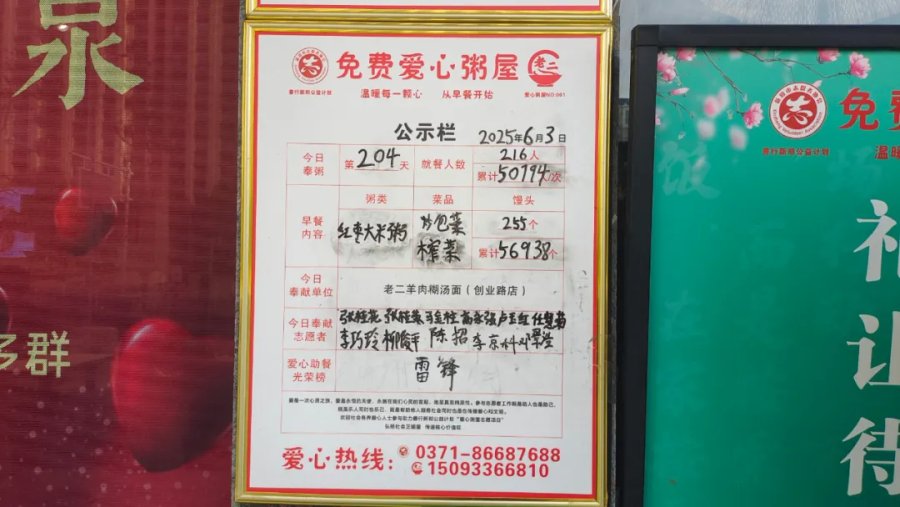 泉
多群
免费爱心粥屋
老二
善行新郑公益计划
温暖每一颗心 从早餐开始
爱心粥屋NO·061
公示栏 2025年6月3日
今日奉粥 第204天 就餐人数 216人
累计50794人/次
粥类 菜品 馒头
早餐内容 红枣大米粥 炒包菜 255个
榨菜 累计56938个
今日奉献单位 老二羊肉糊汤面（创业路店）
今日奉献志愿者
李巧玲 柳俊平 陈招
爱心助餐光荣榜 雷锋
爱心热线： 0371-86687688
15093366810
免
善行新郑公益计划
温暖
礼
让
待